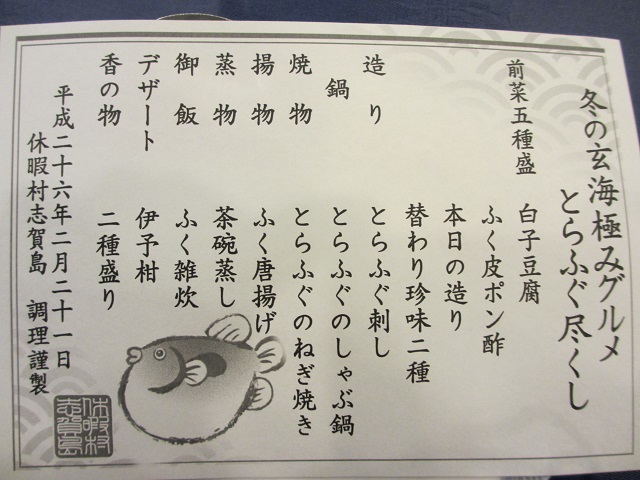 冬の玄海極みグルメ
とらふぐ尽くし
前菜五種盛 白子豆腐
ふく皮ポン酢
本日の造り
替わり珍味二種
造り とらふぐ刺し
鍋 とらふぐのしゃぶ鍋
焼物 とらふぐのねぎ焼き
揚物 ふく唐揚げ
蒸物 茶碗蒸し
御飯 ふく雑炊
デザート 伊予柑
香の物 二種盛り
平成二十六年二月二十一日
休暇村志賀島 調理謹製
休暇村
志賀島